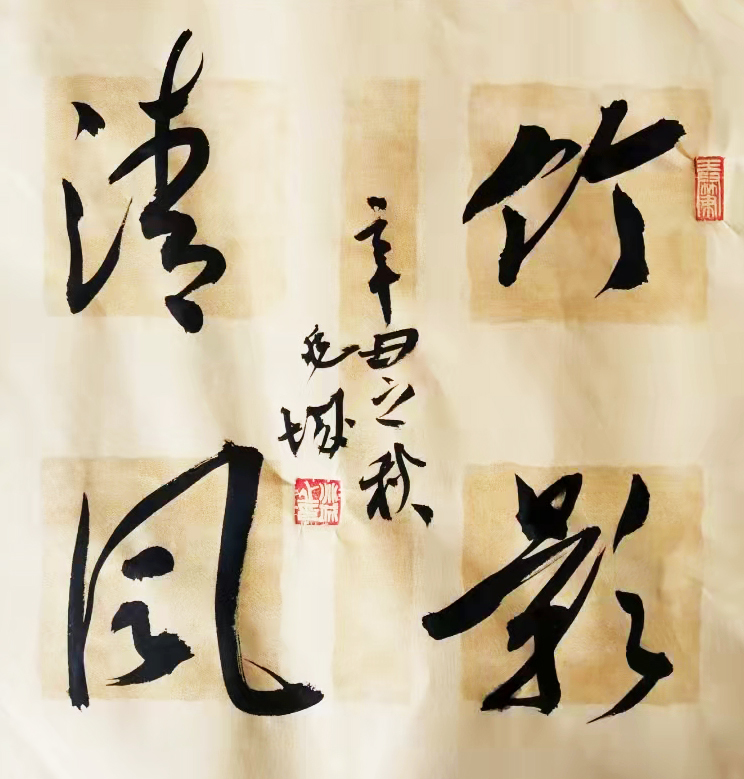 竹影
清风
辛丑之秋